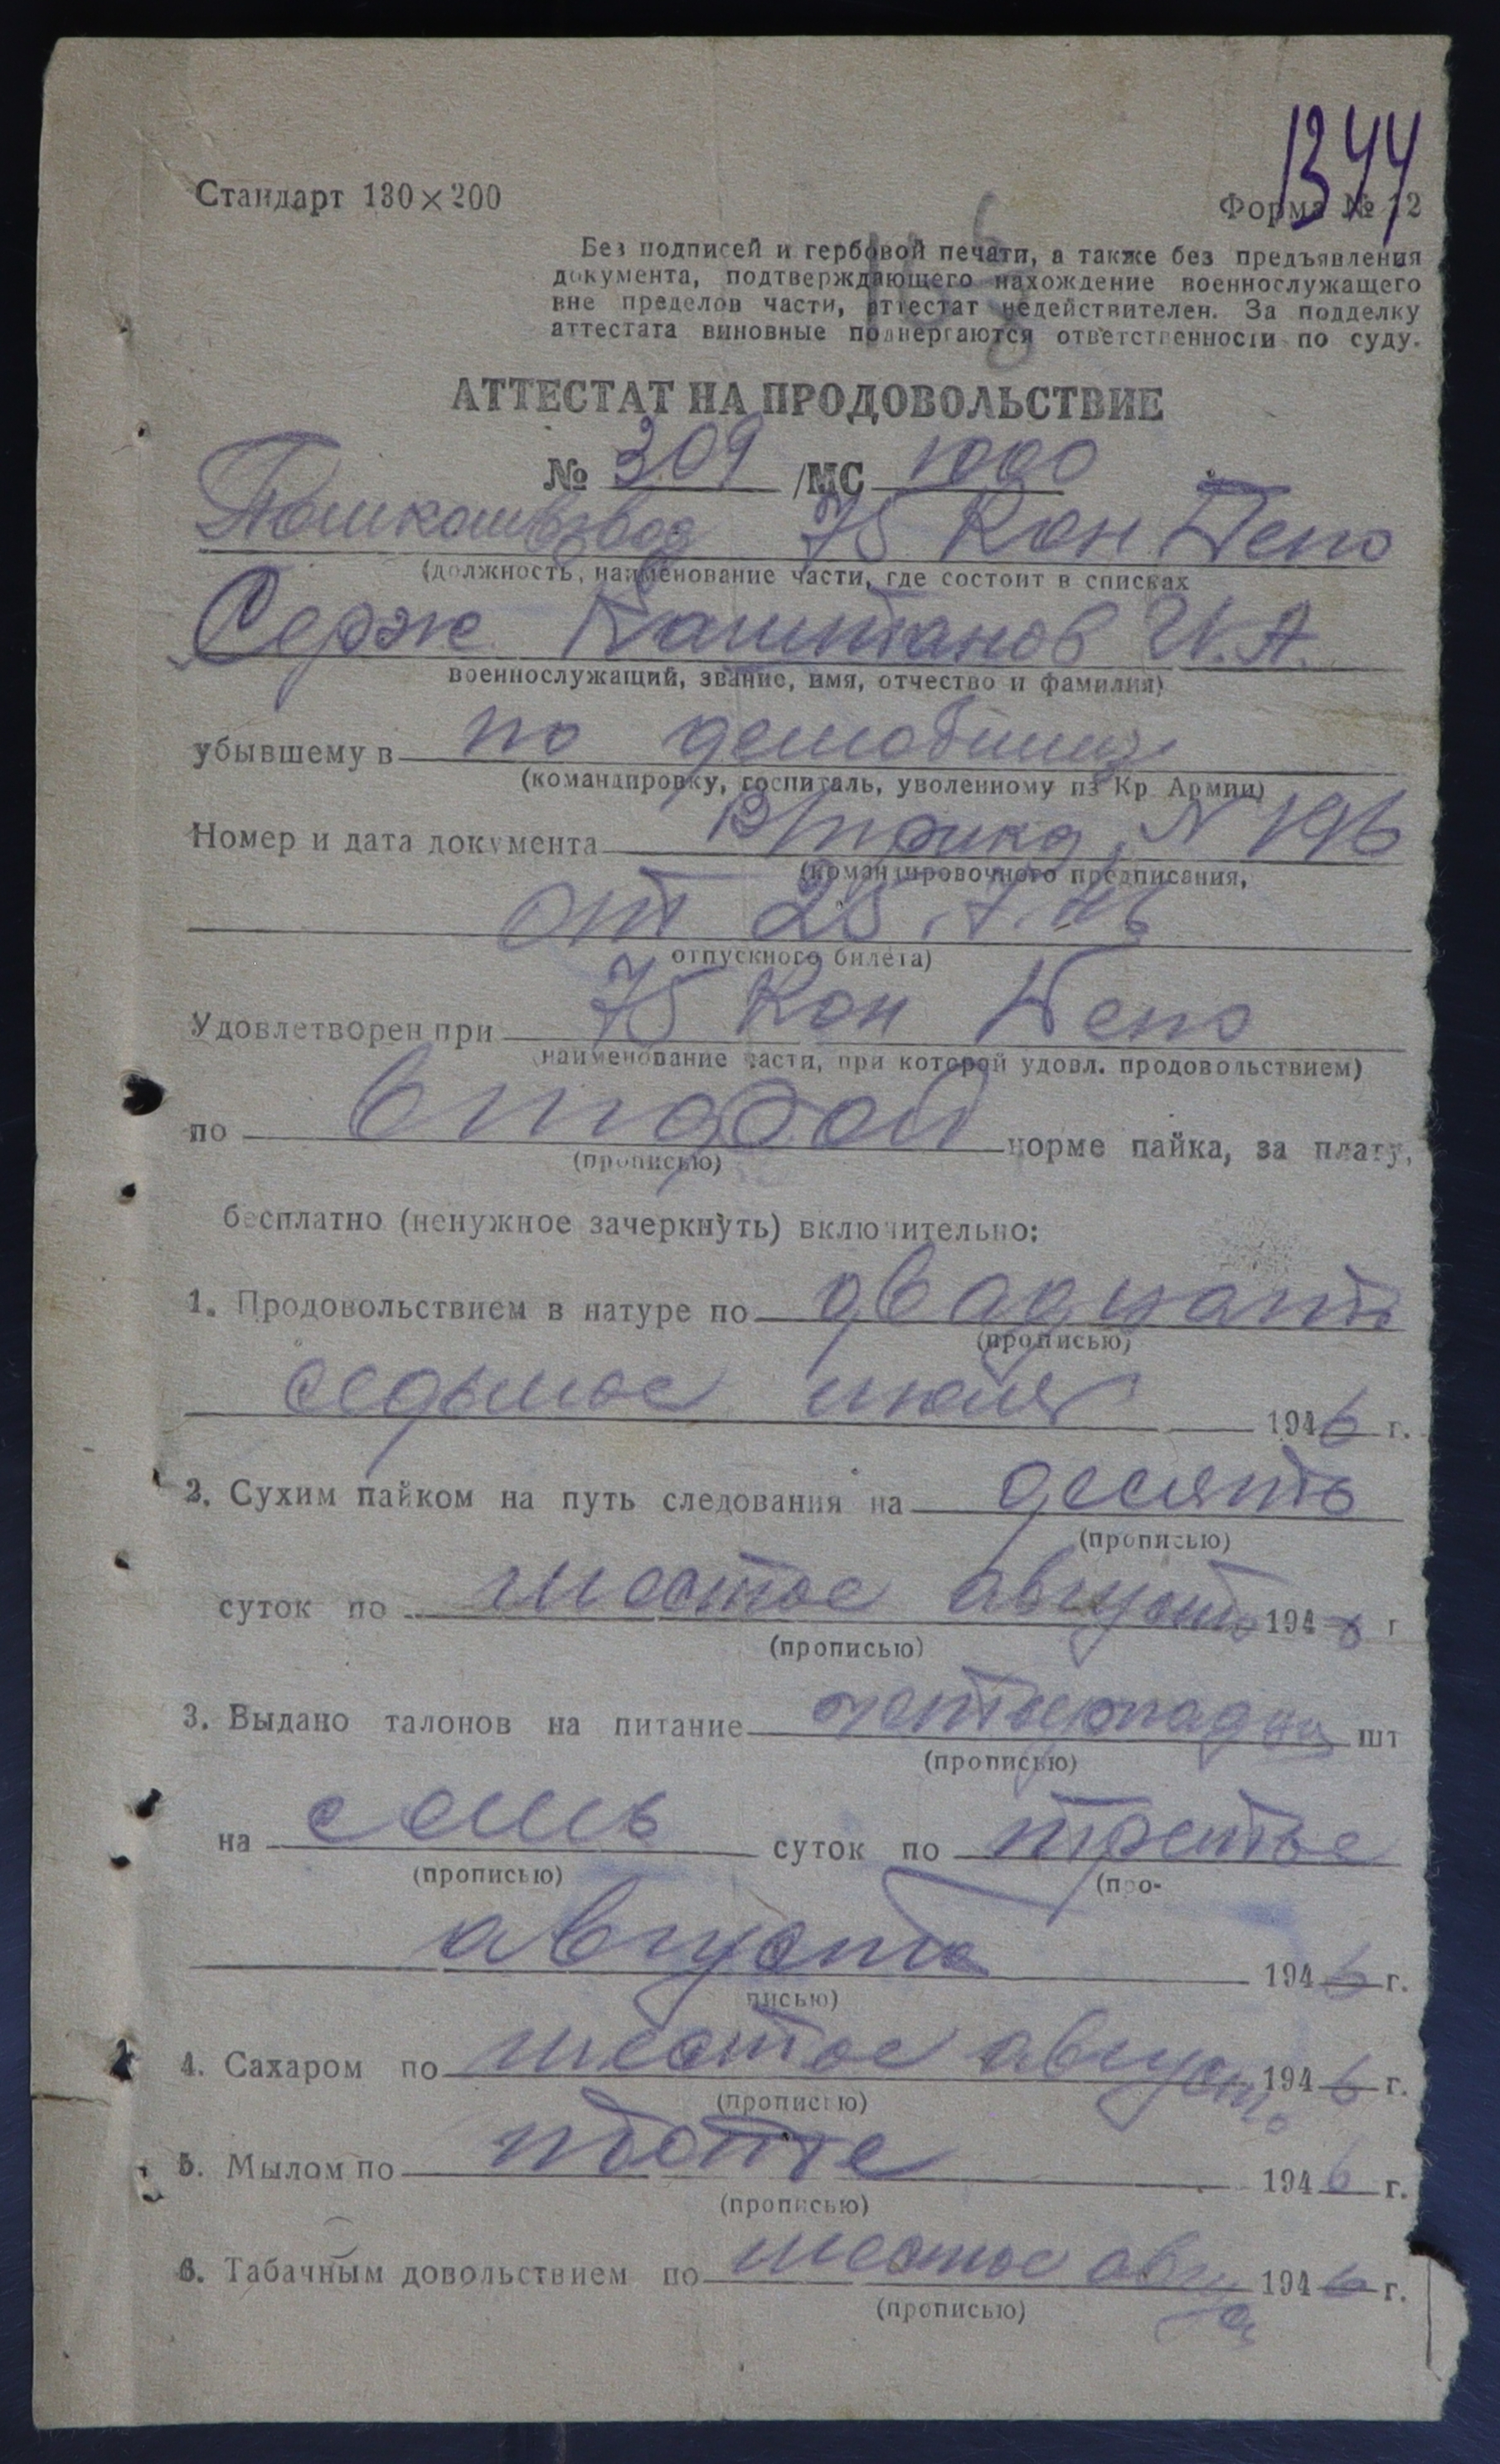 1344
Стандарт 130×200
Форма № 12
Без подписей и гербовой печати, а также без предъявления
документа, подтверждающего нахождение военнослужащего
вне пределов части, аттестат недействителен. За подделку
аттестата виновные подвергаются ответственности по суду.
АТТЕСТАТ НА ПРОДОВОЛЬСТВИЕ
№ 309 /МС 1000
75 Кон Депо
(должность, наименование части, где состоит в списках
Серж Каштанов И. А.
военнослужащий, звание, имя, отчество и фамилия)
убывшему в по
(командировку, госпиталь, уволенному из Кр Армии)
Номер и дата документа N 196
(командировочного предписания,
от 25.7.46
отпускного билета)
Удовлетворен при 75 Кон Депо
(наименование части, при которой удовл. продовольствием)
по второй норме пайка, за плату,
(прописью)
бесплатно (ненужное зачеркнуть) включительно:
1. Продовольствием в натуре по двадцать
(прописью)
седьмое июля 1946 г.
2. Сухим пайком на путь следования на десять
(прописью)
суток по шестое августа 1946 г
(прописью)
3. Выдано талонов на питание шт
(прописью)
на семь суток по третье
(прописью) (про-
августа 1946 г.
писью)
4. Сахаром по шестое августа 1946 г.
(прописью)
5. Мылом по 1946 г.
(прописью)
6. Табачным довольствием по шестое авгу 1946 г.
(прописью)